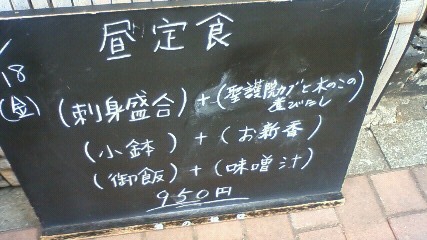 昼定食
/18
(金)
(刺身盛合)+(聖護院カブと木のこの煮びたし)
(小鉢)+(お新香)
(御飯)+(味噌汁)
950円